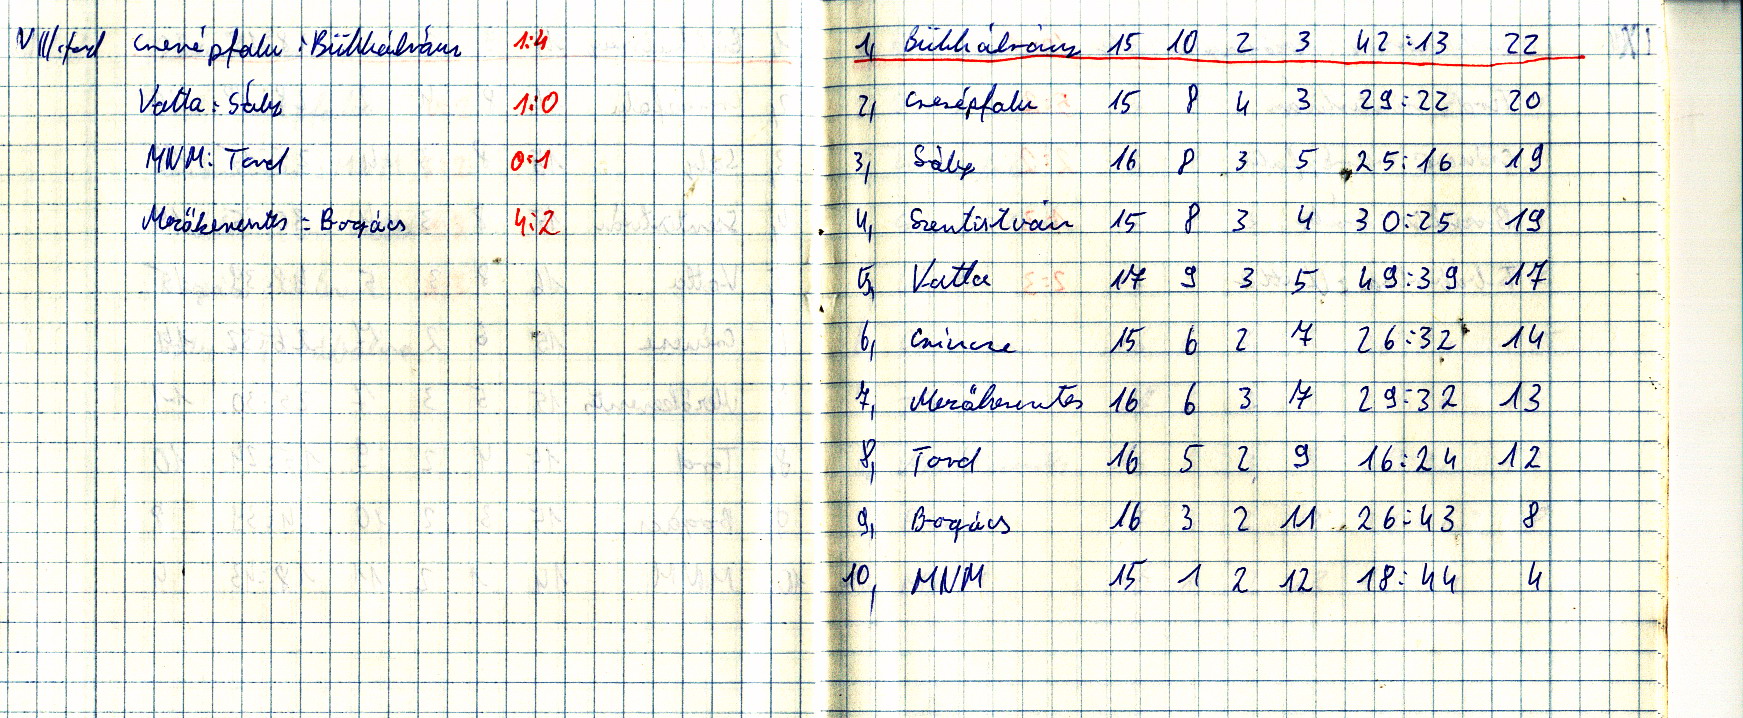 VIII. ford Cserépfalu : Bükkábrány 1:4
Vatta : Sály 1:0
MNM : Tard 0:1
Mezőkeresztes : Bogács 4:2
1, Bükkábrány 15 10 2 3 42:13 22
2, Cserépfalu 15 8 4 3 29:22 20
3, Sály 16 8 3 5 25:16 19
4, Szentistván 15 8 3 4 30:25 19
5, Vatta 17 9 3 5 49:39 17
6, Csincse 15 6 2 7 26:32 14
7, Mezőkeresztes 16 6 3 7 29:32 13
8, Tard 16 5 2 9 16:24 12
9, Bogács 16 3 2 11 26:43 8
10, MNM 15 1 2 12 18:44 4